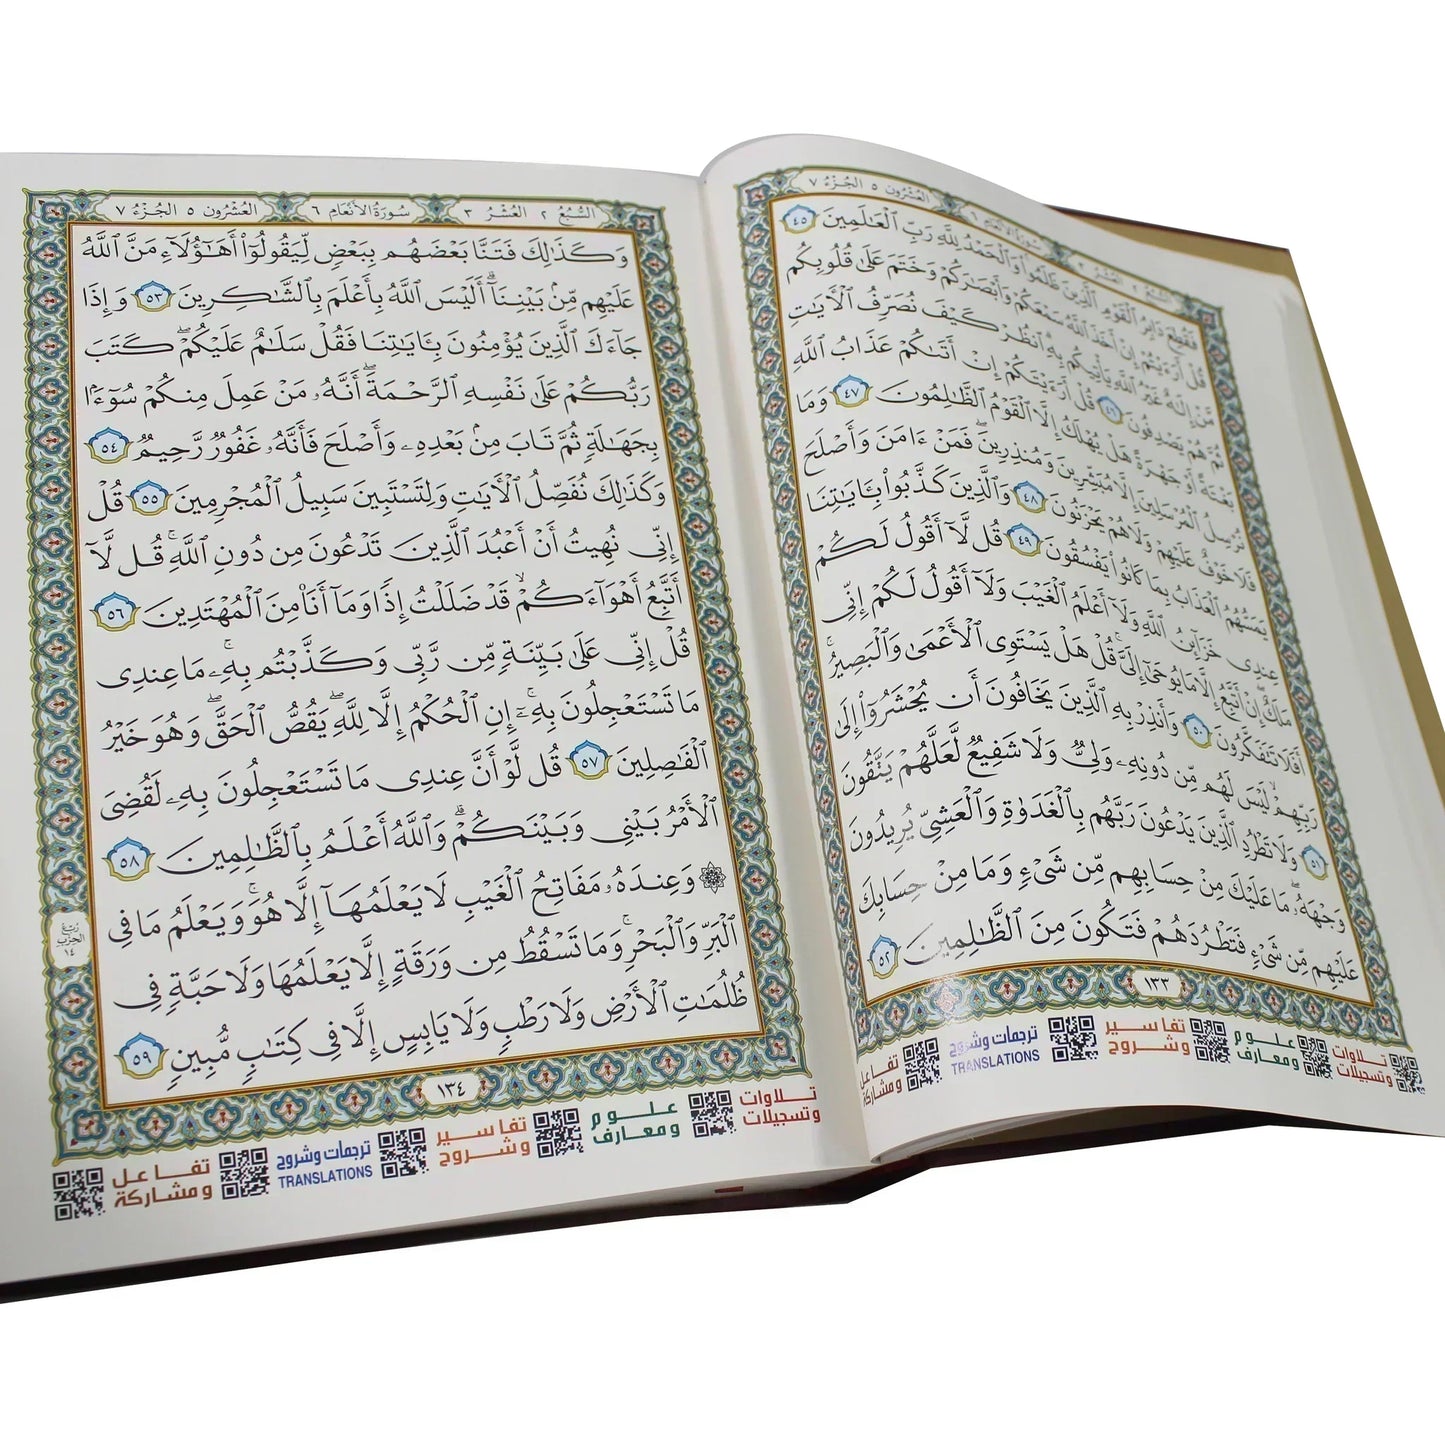 العشرون ٥ الجزء ٧
سورة الأنعام ٦
السبع ٢ العشر ٣
فَقُطِعَ دَابِرُ ٱلْقَوْمِ ٱلَّذِينَ ظَلَمُوا۟ وَٱلْحَمْدُ لِلَّهِ رَبِّ ٱلْعَـٰلَمِينَ ٤٥
قُلْ أَرَءَيْتُمْ إِنْ أَخَذَ ٱللَّهُ سَمْعَكُمْ وَأَبْصَـٰرَكُمْ وَخَتَمَ عَلَىٰ قُلُوبِكُم
مَّنْ إِلَـٰهٌ غَيْرُ ٱللَّهِ يَأْتِيكُم بِهِ ٱنظُرْ كَيْفَ نُصَرِّفُ ٱلْـَٔايَـٰتِ
ثُمَّ هُمْ يَصْدِفُونَ ٤٦ قُلْ أَرَءَيْتَكُمْ إِنْ أَتَىٰكُمْ عَذَابُ ٱللَّهِ
بَغْتَةً أَوْ جَهْرَةً هَلْ يُهْلَكُ إِلَّا ٱلْقَوْمُ ٱلظَّـٰلِمُونَ ٤٧ وَمَا
نُرْسِلُ ٱلْمُرْسَلِينَ إِلَّا مُبَشِّرِينَ وَمُنذِرِينَ ۖ فَمَنْ ءَامَنَ وَأَصْلَحَ
فَلَا خَوْفٌ عَلَيْهِمْ وَلَا هُمْ يَحْزَنُونَ ٤٨ وَٱلَّذِينَ كَذَّبُوا۟ بِـَٔايَـٰتِنَا
يَمَسُّهُمُ ٱلْعَذَابُ بِمَا كَانُوا۟ يَفْسُقُونَ ٤٩ قُل لَّآ أَقُولُ لَكُمْ
عِندِى خَزَآئِنُ ٱللَّهِ وَلَآ أَعْلَمُ ٱلْغَيْبَ وَلَآ أَقُولُ لَكُمْ إِنِّى
مَلَكٌ ۖ إِنْ أَتَّبِعُ إِلَّا مَا يُوحَىٰٓ إِلَىَّ ۚ قُلْ هَلْ يَسْتَوِى ٱلْأَعْمَىٰ وَٱلْبَصِيرُ ۚ
أَفَلَا تَتَفَكَّرُونَ ٥٠ وَأَنذِرْ بِهِ ٱلَّذِينَ يَخَافُونَ أَن يُحْشَرُوٓا۟ إِلَىٰ
رَبِّهِمْ ۙ لَيْسَ لَهُم مِّن دُونِهِۦ وَلِىٌّ وَلَا شَفِيعٌ لَّعَلَّهُمْ يَتَّقُونَ
٥١ وَلَا تَطْرُدِ ٱلَّذِينَ يَدْعُونَ رَبَّهُم بِٱلْغَدَوٰةِ وَٱلْعَشِىِّ يُرِيدُونَ
وَجْهَهُۥ ۖ مَا عَلَيْكَ مِنْ حِسَابِهِم مِّن شَىْءٍ وَمَا مِنْ حِسَابِكَ
عَلَيْهِم مِّن شَىْءٍ فَتَطْرُدَهُمْ فَتَكُونَ مِنَ ٱلظَّـٰلِمِينَ ٥٢
١٣٣
تلاوات وتسجيلات
علوم ومعارف
تفاسير وشروح
ترجمات وشروح TRANSLATIONS
تفاعل ومشاركة
السبع ٢ العشر ٣
سورة الأنعام ٦
العشرون ٥ الجزء ٧
وَكَذَٰلِكَ فَتَنَّا بَعْضَهُم بِبَعْضٍ لِّيَقُولُوٓا۟ أَهَـٰٓؤُلَآءِ مَنَّ ٱللَّهُ
عَلَيْهِم مِّنۢ بَيْنِنَآ ۗ أَلَيْسَ ٱللَّهُ بِأَعْلَمَ بِٱلشَّـٰكِرِينَ ٥٣ وَإِذَا
جَآءَكَ ٱلَّذِينَ يُؤْمِنُونَ بِـَٔايَـٰتِنَا فَقُلْ سَلَـٰمٌ عَلَيْكُمْ ۖ كَتَبَ
رَبُّكُمْ عَلَىٰ نَفْسِهِ ٱلرَّحْمَةَ ۖ أَنَّهُۥ مَنْ عَمِلَ مِنكُمْ سُوٓءًۢا
بِجَهَـٰلَةٍ ثُمَّ تَابَ مِنۢ بَعْدِهِۦ وَأَصْلَحَ فَأَنَّهُۥ غَفُورٌ رَّحِيمٌ ٥٤
وَكَذَٰلِكَ نُفَصِّلُ ٱلْـَٔايَـٰتِ وَلِتَسْتَبِينَ سَبِيلُ ٱلْمُجْرِمِينَ ٥٥ قُلْ
إِنِّى نُهِيتُ أَنْ أَعْبُدَ ٱلَّذِينَ تَدْعُونَ مِن دُونِ ٱللَّهِ ۚ قُل لَّآ
أَتَّبِعُ أَهْوَآءَكُمْ ۙ قَدْ ضَلَلْتُ إِذًا وَمَآ أَنَا۠ مِنَ ٱلْمُهْتَدِينَ ٥٦
قُلْ إِنِّى عَلَىٰ بَيِّنَةٍ مِّن رَّبِّى وَكَذَّبْتُم بِهِۦ ۚ مَا عِندِى
مَا تَسْتَعْجِلُونَ بِهِۦٓ ۚ إِنِ ٱلْحُكْمُ إِلَّا لِلَّهِ ۖ يَقُصُّ ٱلْحَقَّ ۖ وَهُوَ خَيْرُ
ٱلْفَـٰصِلِينَ ٥٧ قُل لَّوْ أَنَّ عِندِى مَا تَسْتَعْجِلُونَ بِهِۦ لَقُضِىَ
ٱلْأَمْرُ بَيْنِى وَبَيْنَكُمْ ۗ وَٱللَّهُ أَعْلَمُ بِٱلظَّـٰلِمِينَ ٥٨
۞ وَعِندَهُۥ مَفَاتِحُ ٱلْغَيْبِ لَا يَعْلَمُهَآ إِلَّا هُوَ ۚ وَيَعْلَمُ مَا فِى
ٱلْبَرِّ وَٱلْبَحْرِ ۚ وَمَا تَسْقُطُ مِن وَرَقَةٍ إِلَّا يَعْلَمُهَا وَلَا حَبَّةٍ فِى
ظُلُمَـٰتِ ٱلْأَرْضِ وَلَا رَطْبٍ وَلَا يَابِسٍ إِلَّا فِى كِتَـٰبٍ مُّبِينٍ ٥٩
ربع
الحزب
١٤
١٣٤
تلاوات وتسجيلات
علوم ومعارف
تفاسير وشروح
ترجمات وشروح TRANSLATIONS
تفاعل ومشاركة